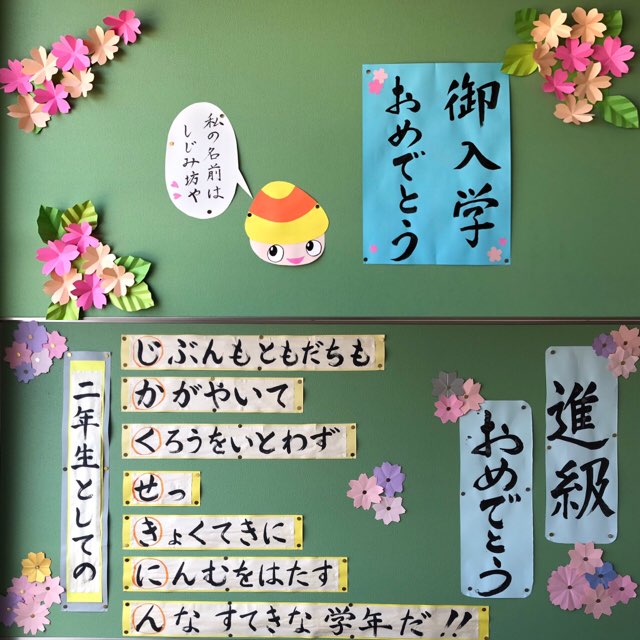 御入学
おめでとう
私の名前は
しじみ坊や
進級
おめでとう
二年生としての
じぶんもともだちも
かがやいて
くろうをいとわず
せっ
きょくてきに
にんむをはたす
んなすてきな学年だ!!